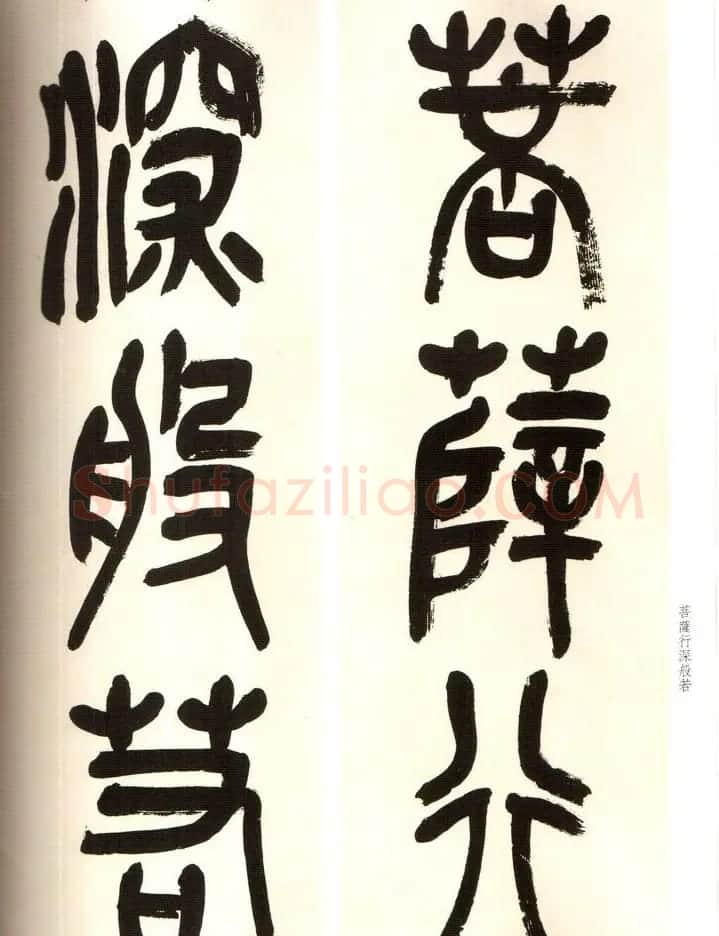 菩薩行
深般若
菩薩行深般若
Shufaziliao.COM